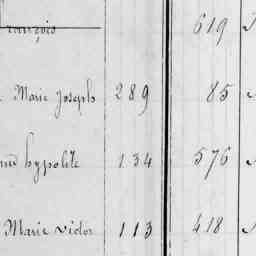 françois 619
Marie Joseph 289 85
hypolite 134 576
Marie victor 113 418